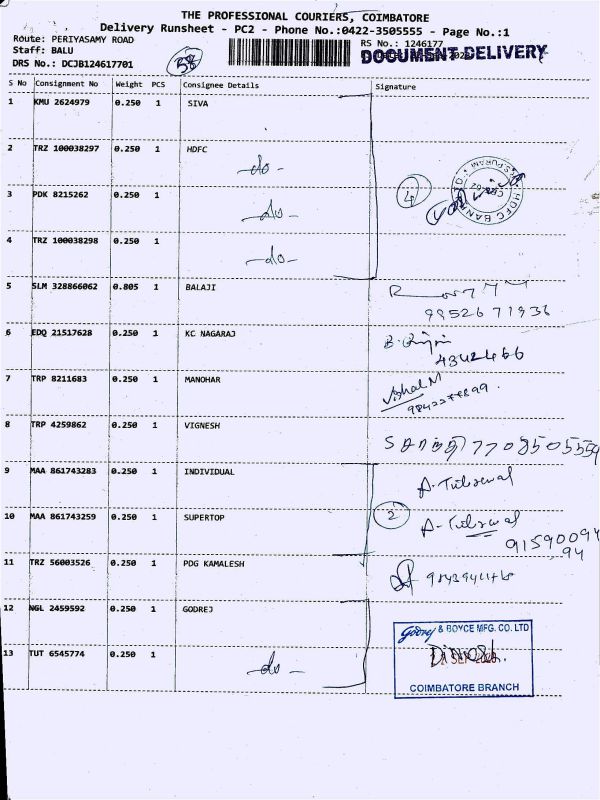 THE PROFESSIONAL COURIERS, COIMBATORE
Delivery Runsheet - PC2 - Phone No.:0422-3505555 - Page No.:1
Route: PERIYASAMY ROAD
RS No.: 1246177
Staff: BALU
DOCUMENT DELIVERY
DRS No.: DCJB124617701
38
S No Consignment No Weight PCS Consignee Details Signature
1 KMU 2624979 0.250 1 SIVA
2 TRZ 100038297 0.250 1 HDFC
-do-
3 PDK 8215262 0.250 1
-do-
4
HDFC BANK
4 TRZ 100038298 0.250 1
-do-
5 SLM 328866062 0.805 1 BALAJI
99526 71936
6 EDQ 21517628 0.250 1 KC NAGARAJ
4342466
7 TRP 8211683 0.250 1 MANOHAR
Vishal M
8 TRP 4259862 0.250 1 VIGNESH
7708505559
9 MAA 861743283 0.250 1 INDIVIDUAL
10 MAA 861743259 0.250 1 SUPERTOP
2
91590094
94
11 TRZ 56003526 0.250 1 PDG KAMALESH
12 NGL 2459592 0.250 1 GODREJ
Godrej & BOYCE MFG. CO. LTD
13 TUT 6545774 0.250 1
-do-
COIMBATORE BRANCH